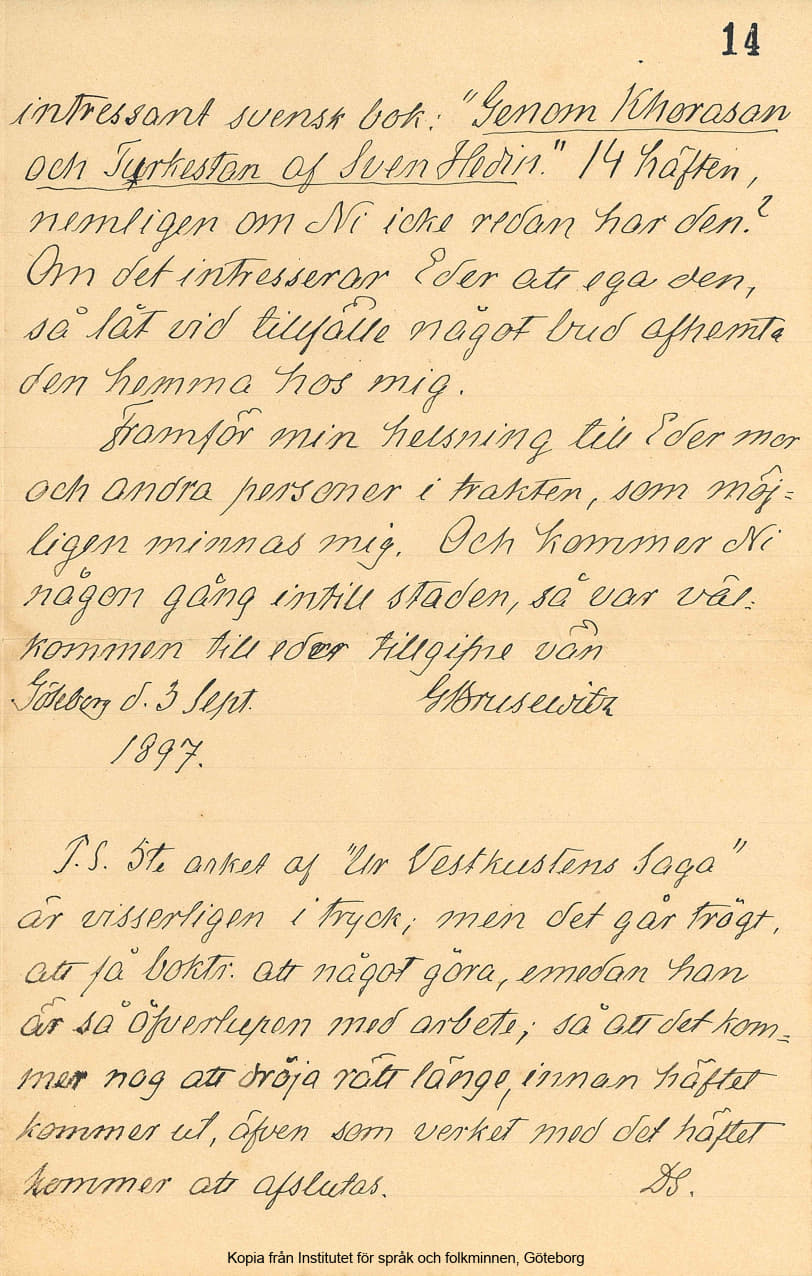 14
intressant svensk bok: "Genom Khorasan
och Turkestan af Sven Hedin." 14 häften,
nemligen om Ni icke redan har den?
Om det intresserar Eder att ega den,
så låt vid tillfälle något bud afhemta
den hemma hos mig.
Framför min helsning till Eder mor
och andra personer i trakten, som möj=
ligen minnas mig. Och kommer Ni
någon gång intill staden, så var väl=
kommen till eder tillgifne vän
Göteborg d. 3 Sept. GBrusewitz
1897.
P.S. 5te arket af "Ur Vestkustens Saga"
är visserligen i tryck; men det går trögt,
att få boktr. att något göra, emedan han
är så öfverlupen med arbete; så att det kom=
mer nog att dröja rätt länge, innan häftet
kommer ut, äfven som verket med det häftet
kommer att afslutas. DS.
Kopia från Institutet för språk och folkminnen, Göteborg